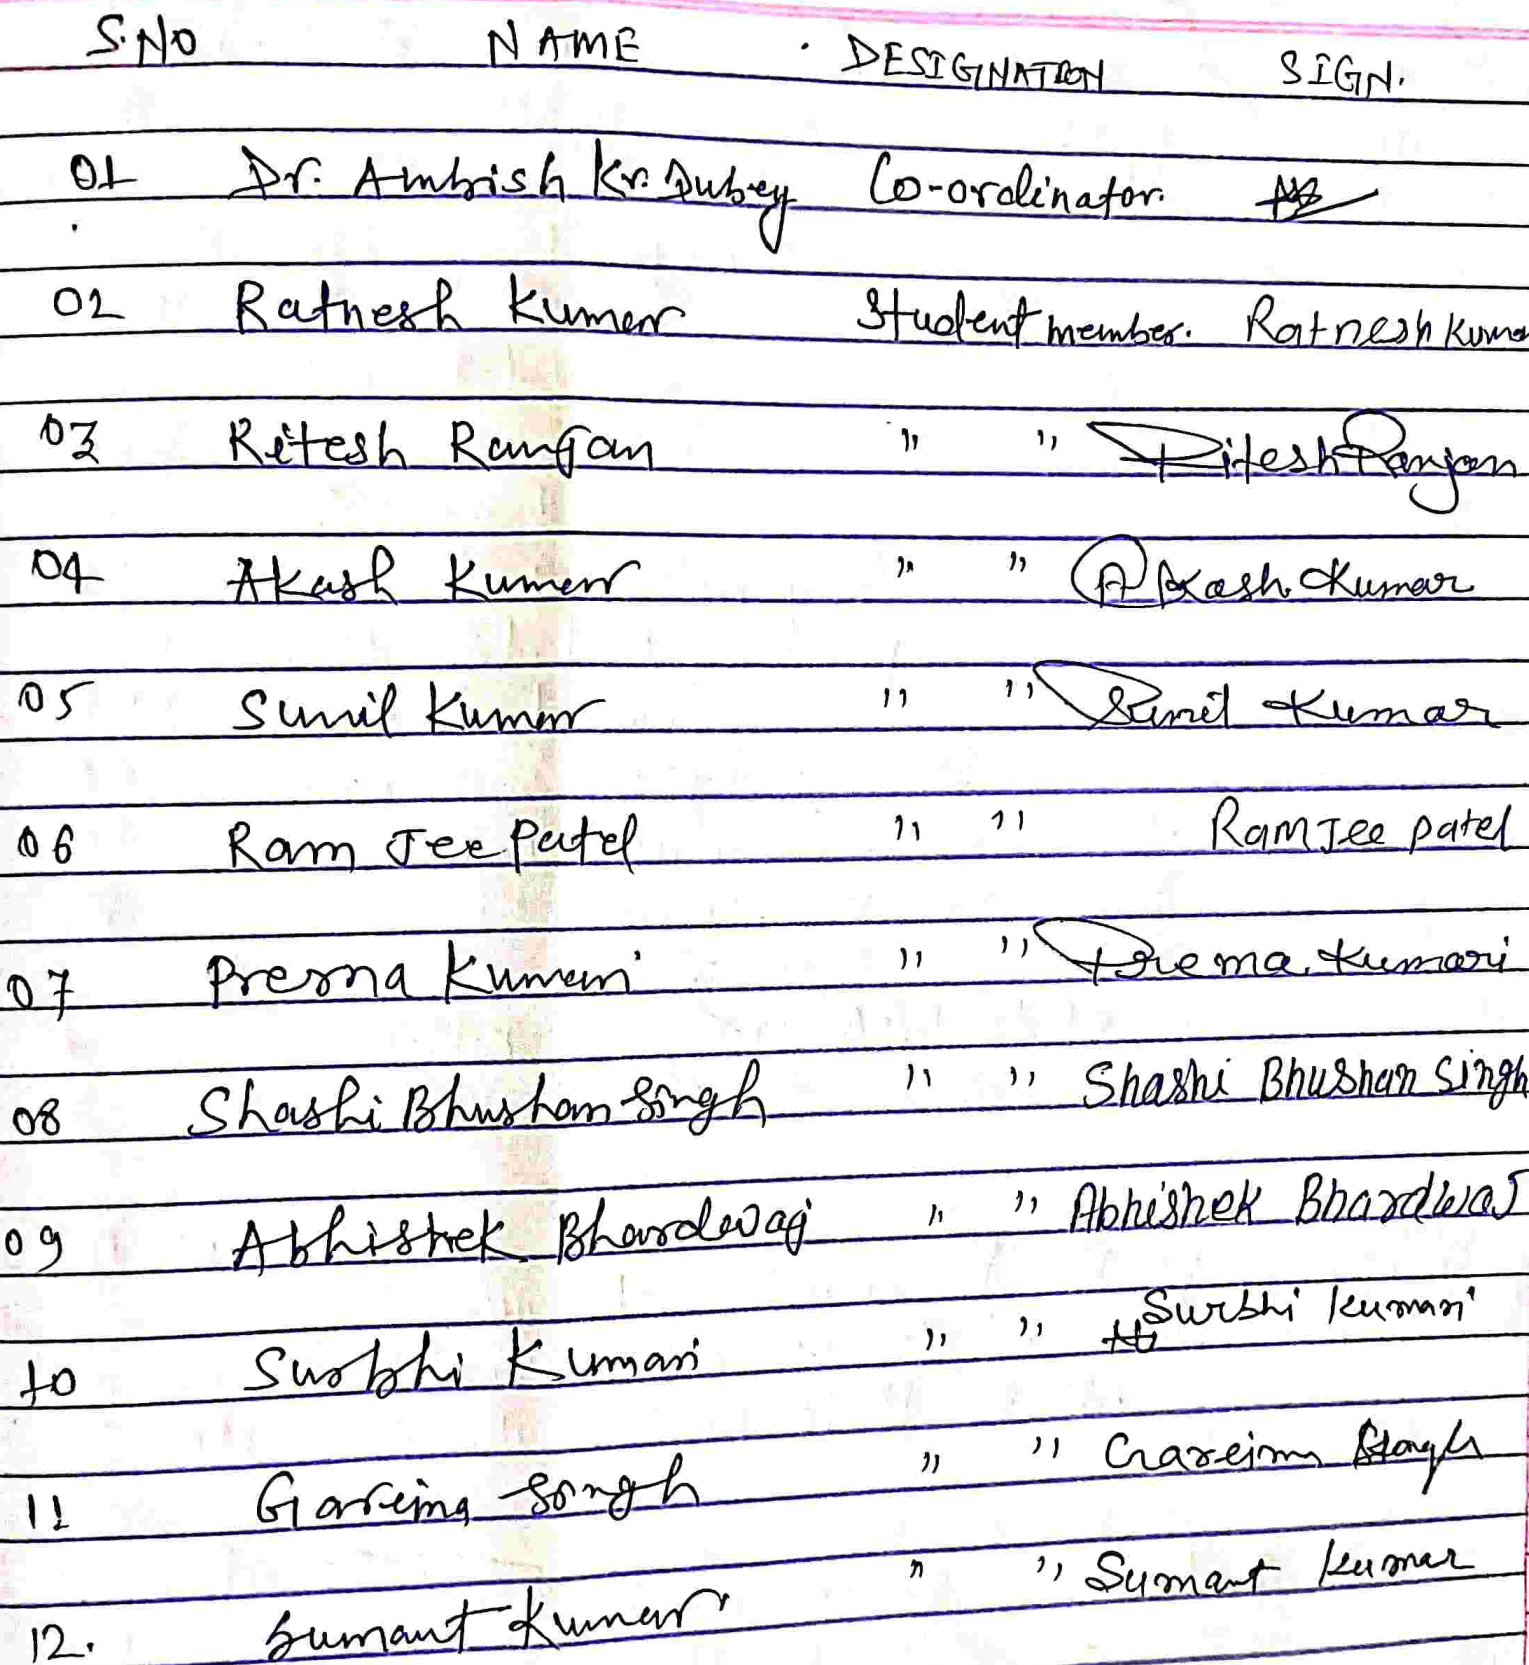 S.NO NAME DESIGINATION SIGN.
01 Dr. Ambrish Kr. Dubey Co-ordinator.
02 Ratnesh Kumar Student member. Ratnesh Kuma
03 Ritesh Ranjan " " Ritesh Ranjan
04 Akash Kumar " " Akash Kumar
05 Sunil Kumar " " Sunil Kumar
06 Ram Jee Patel " " Ram Jee patel
07 Prerna Kumari " " Prerna Kumari
08 Shashi Bhushan Singh " " Shashi Bhushan Singh
09 Abhishek Bhardwaj " " Abhishek Bhardwaj
10 Surbhi Kumari " " Surbhi Kumari
11 Gareima Singh " " Gareima Singh
12. Sumant Kumar " " Sumant Kumar